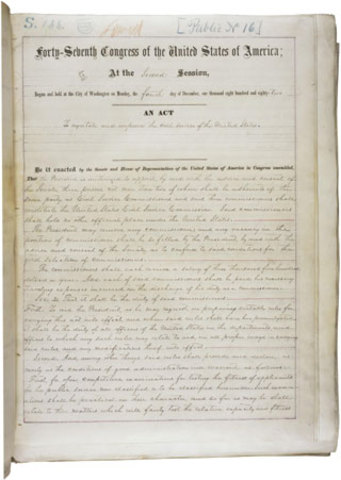 S. 133.
[Public No 16]
Forty-Seventh Congress of the United States of America;
At the Second Session,
Begun and held at the City of Washington on Monday, the fourth day of December, one thousand eight hundred and eighty-two
AN ACT
To regulate and improve the civil service of the United States.
Be it enacted by the Senate and House of Representatives of the United States of America in Congress assembled,
That the President is authorized to appoint, by and with the advice and consent of
the Senate, three persons, not more than two of whom shall be adherents of the
same party, as Civil Service Commissioners, and said three commissioners shall
constitute the United States Civil Service Commission. Said commissioners
shall hold no other official place under the United States.
The President may remove any commissioner; and any vacancy in the
position of commissioner shall be so filled by the President, by and with the
advice and consent of the Senate, as to conform to said conditions for the
first selection of commissioners.
The commissioners shall each receive a salary of three thousand five hundred
dollars a year. And each of said commissioners shall be paid his necessary
traveling expenses incurred in the discharge of his duty as a commissioner.
Sec. 2. That it shall be the duty of said commissioners:
First. To aid the President, as he may request, in preparing suitable rules for
carrying this act into effect, and when said rules shall have been promulgated
it shall be the duty of all officers of the United States in the departments and
offices to which any such rules may relate to aid, in all proper ways, in carrying
said rules, and any modifications thereof, into effect.
Second. And, among other things, said rules shall provide and declare, as
nearly as the conditions of good administration will warrant, as follows:
First, for open, competitive examinations for testing the fitness of applicants
for the public service now classified or to be classified hereunder. Such exami-
nations shall be practical in their character, and so far as may be shall
relate to those matters which will fairly test the relative capacity and fitness